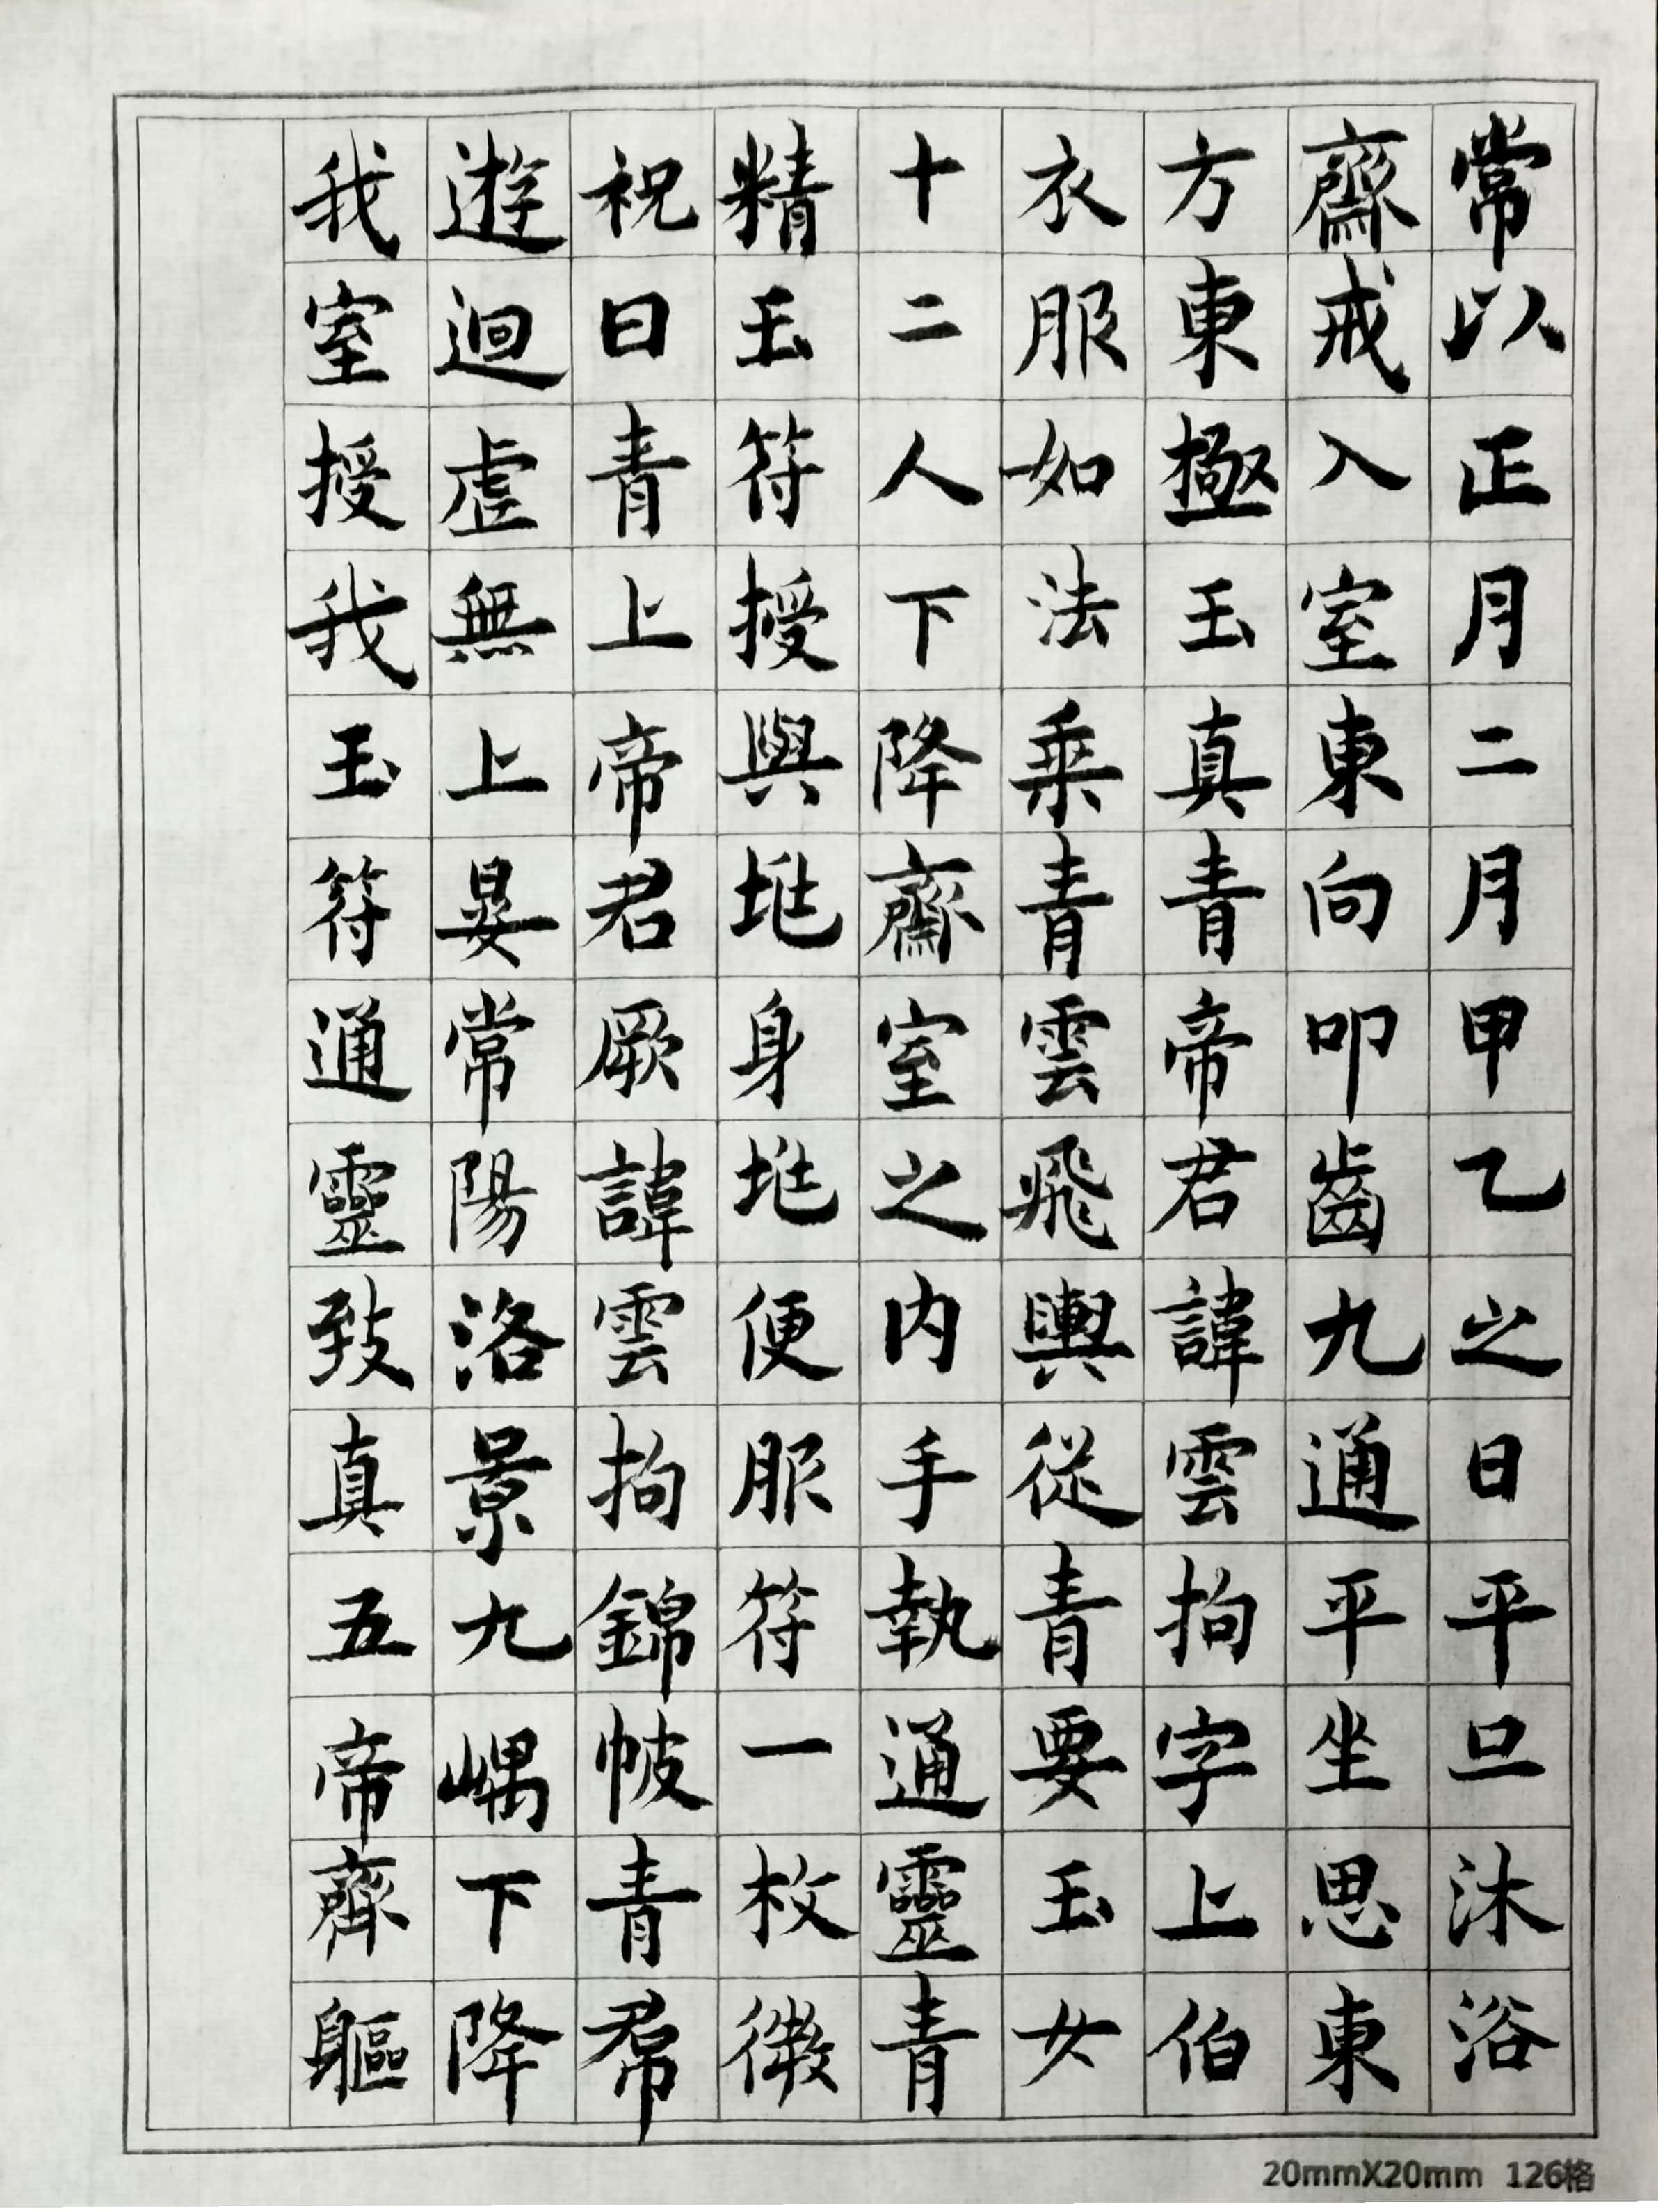 常以正月二月甲乙之日平旦沐浴
齋戒入室東向叩齒九通平坐思東
方東極玉真青帝君諱雲拘字上伯
衣服如法乘青雲飛輿從青要玉女
十二人下降齋室之內手執通靈青
精玉符授與兆身兆便服符一枚微
祝曰青上帝君厥諱雲拘錦帔青帬
遊迴虛無上晏常陽洛景九嵎下降
我室授我玉符通靈致真五帝齊軀
20mmX20mm 126格